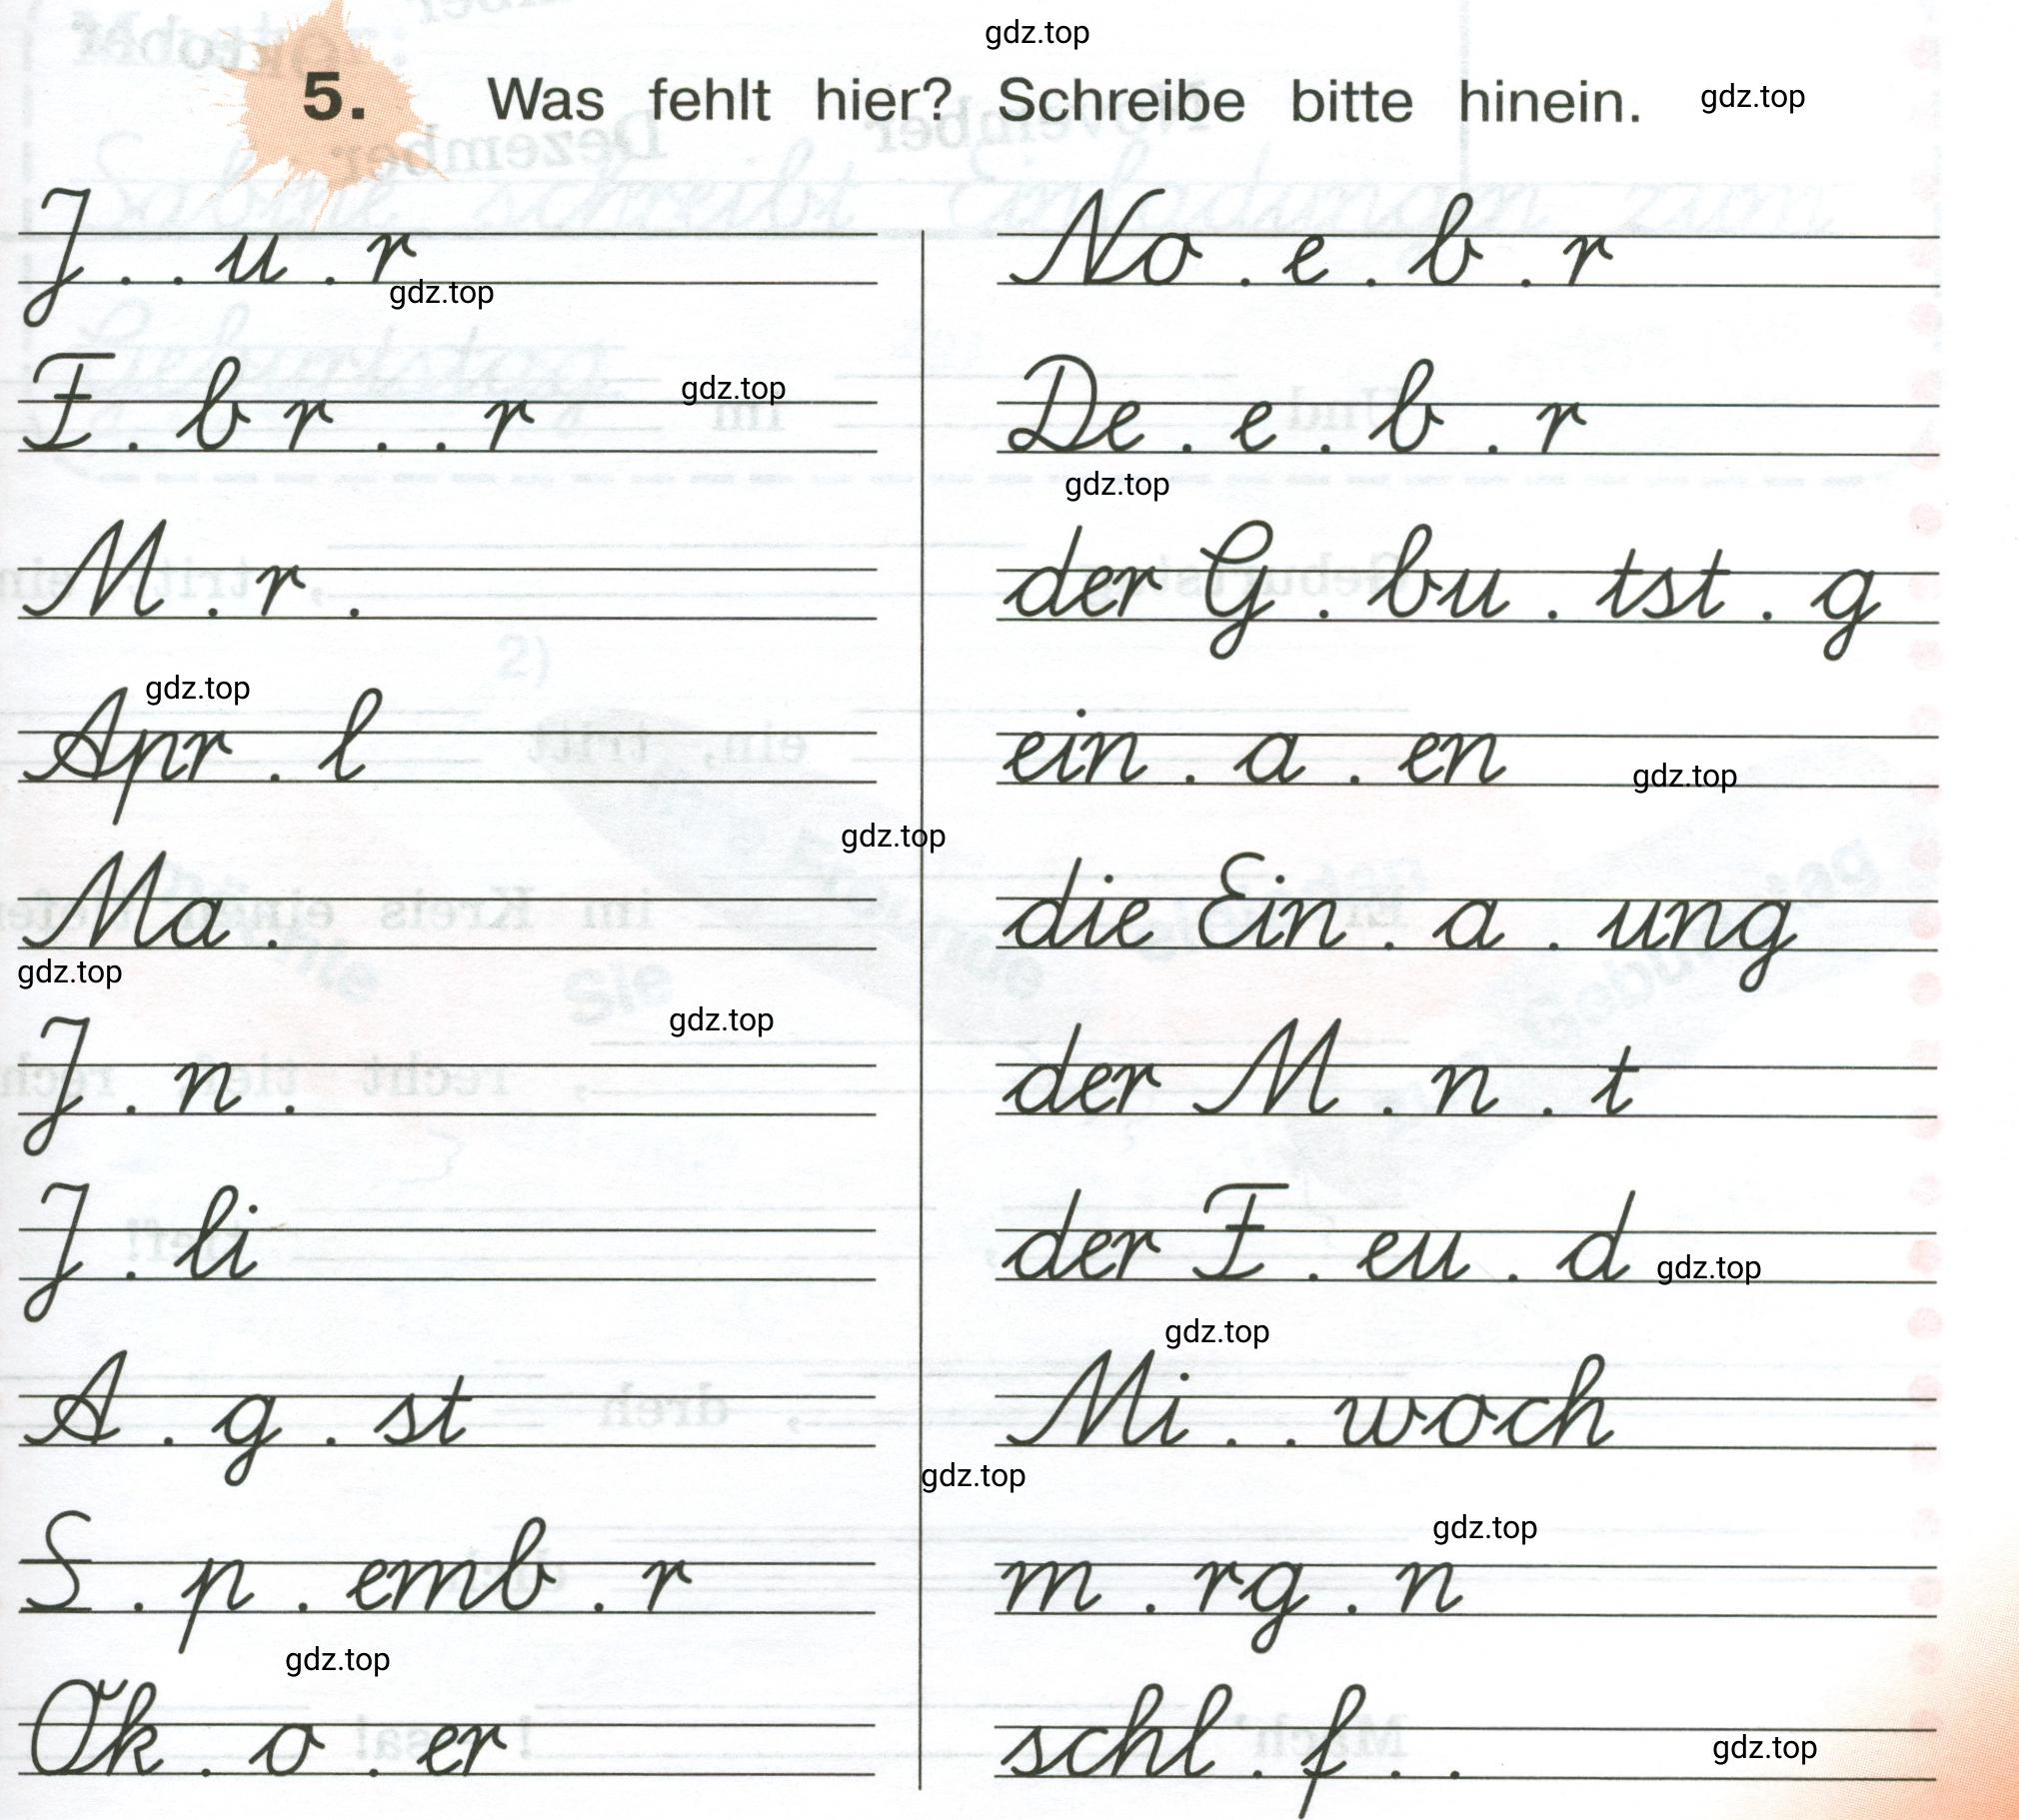 gdz.top
5. Was fehlt hier? Schreibe bitte hinein. gdz.top
J . . u . r
gdz.top
F . b r . . r
gdz.top
M . r .
gdz.top
Apr . l
gdz.top
Ma .
gdz.top
J . n .
gdz.top
J . li
A . g . st
S . p . emb . r
gdz.top
Ok . o . er
No . e . b . r
De . e . b . r
gdz.top
der G . bu . tst . g
ein . a . en
gdz.top
die Ein . a . ung
der M . n . t
der F . eu . d
gdz.top
gdz.top
Mi . . woch
gdz.top
gdz.top
m . rg . n
schl . f . .
gdz.top